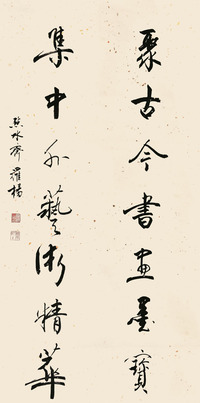 聚古今書畫墨寶
集中外藝術精華
點水齋 羅楊